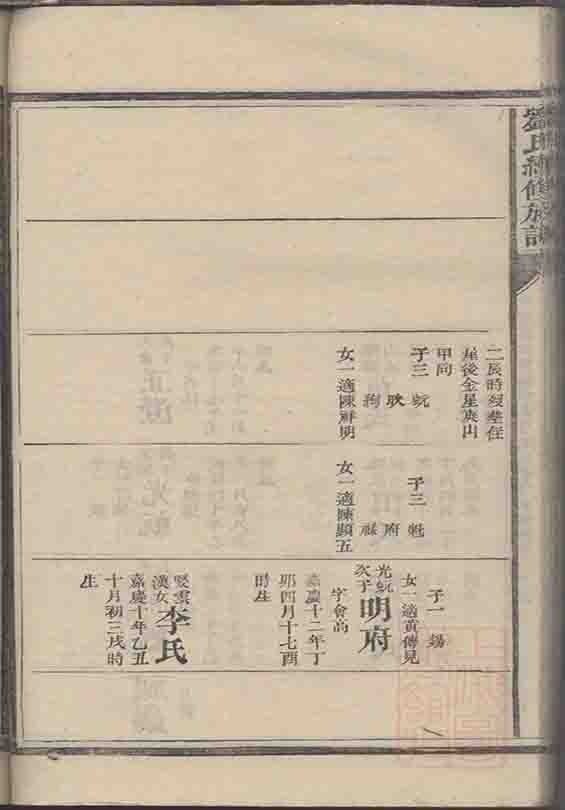 劉氏續修族譜
二辰時歿葬在
屋後金星寅山
甲向
子三
耿
女一適陳祥明
子三 魁
府
祿
女一適陳顯五
子一 錫
女一適黃傳見
光
次子
明府
字會高
嘉慶十二年丁
卯四月十七酉
時生
雲
漢女
李氏
嘉慶十年乙丑
十月初三戌時
生